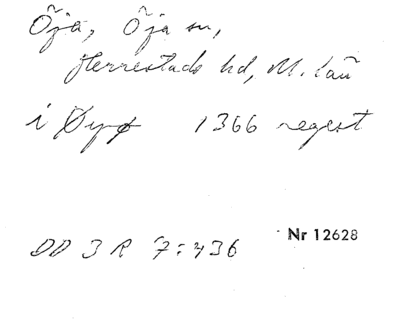 Öja, Öja sn,
Herrestads hd, M. län
i Øyø 1366 regest
DD 3 R 7:436
Nr 12628